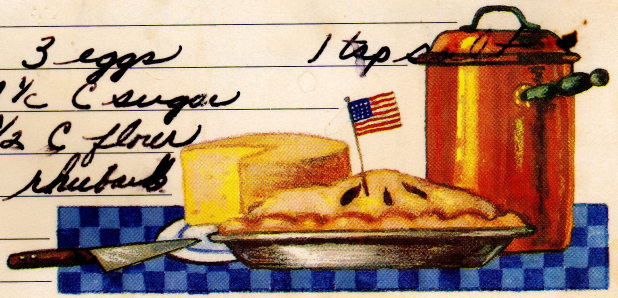 3 eggs 1 tsp salt
C sugar
1/2 C flour
rhubarb